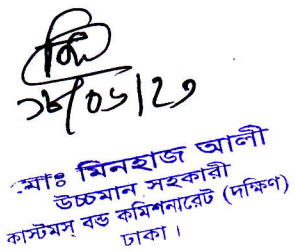 ১৮/০৬/২৩
মোঃ মিনহাজ আলী
উচ্চমান সহকারী
কাস্টমস্ বন্ড কমিশনারেট (দক্ষিণ)
ঢাকা।